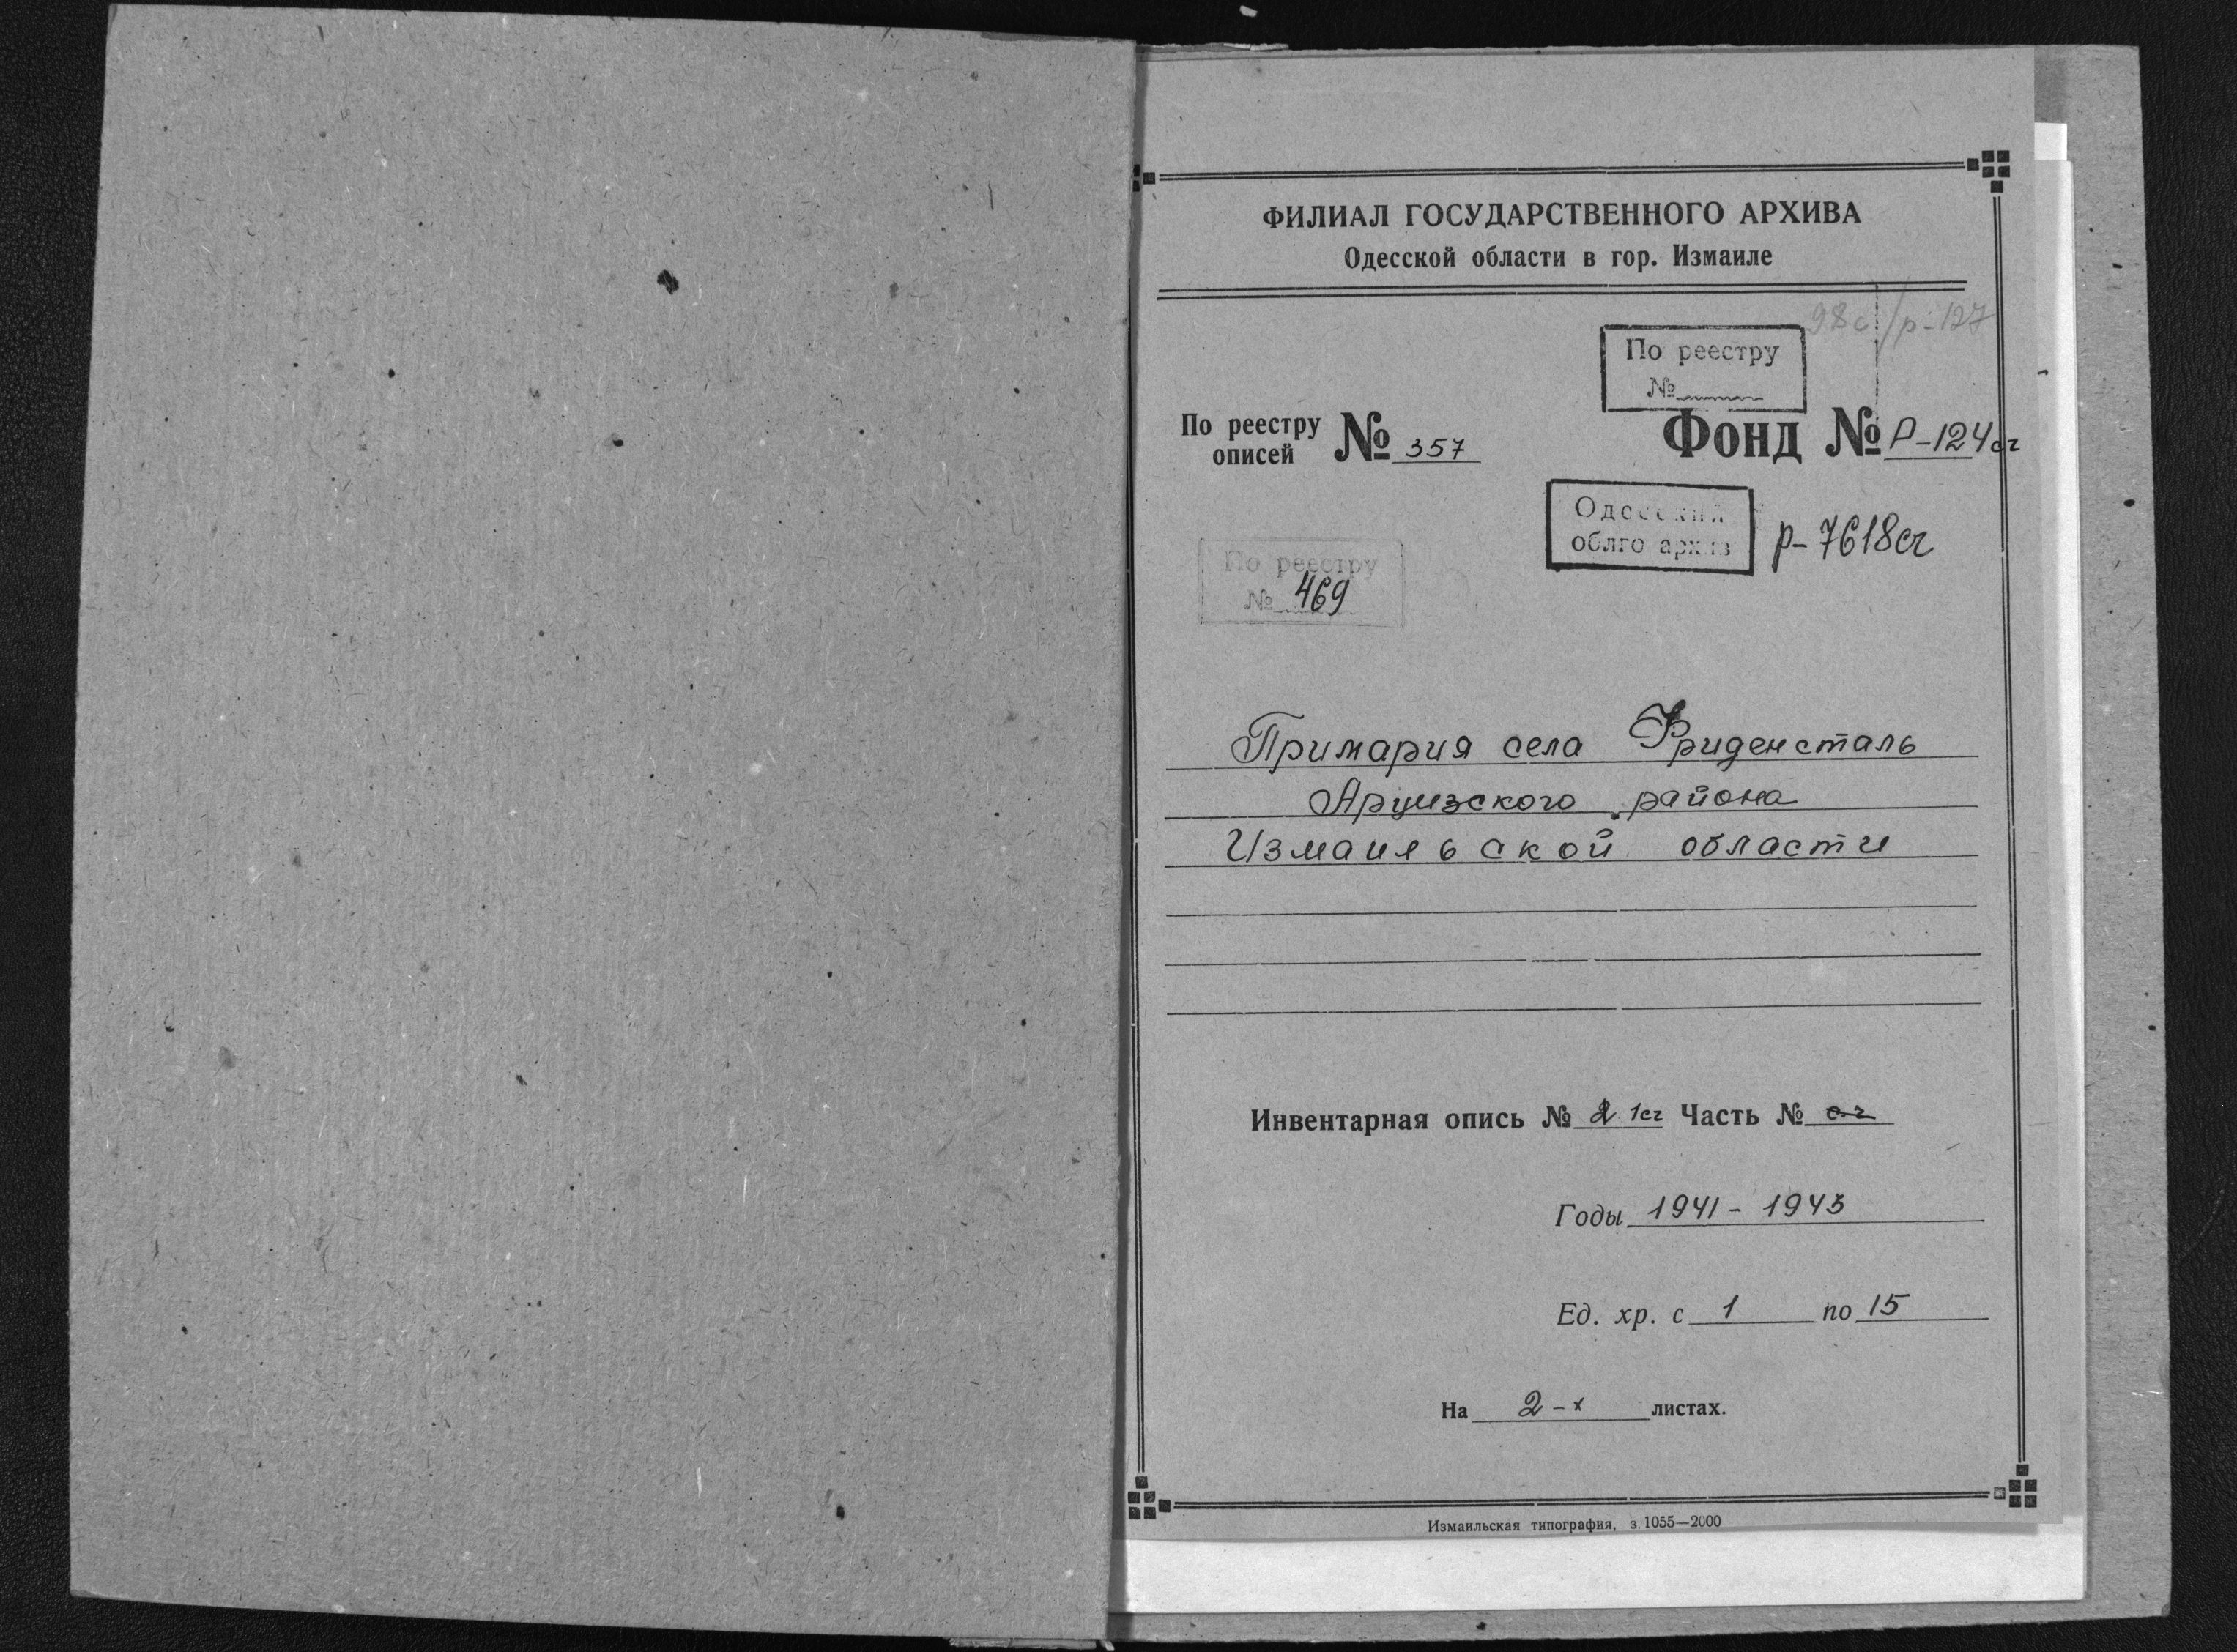 ФИЛИАЛ ГОСУДАРСТВЕННОГО АРХИВА
Одесской области в гор. Измаиле
98с/р-127
По реестру
№
По реестру описей № 357
Фонд № Р-124сг
Одесский
облгоархив
р-7618сг
По реестру
№ 469
Примария села Фриденсталь
Арцизского района
Измаильской области
Инвентарная опись № 2 1сг Часть № сг
Годы 1941-1943
Ед. хр. с 1 по 15
На 2-х листах.
Измаильская типография, з. 1055—2000